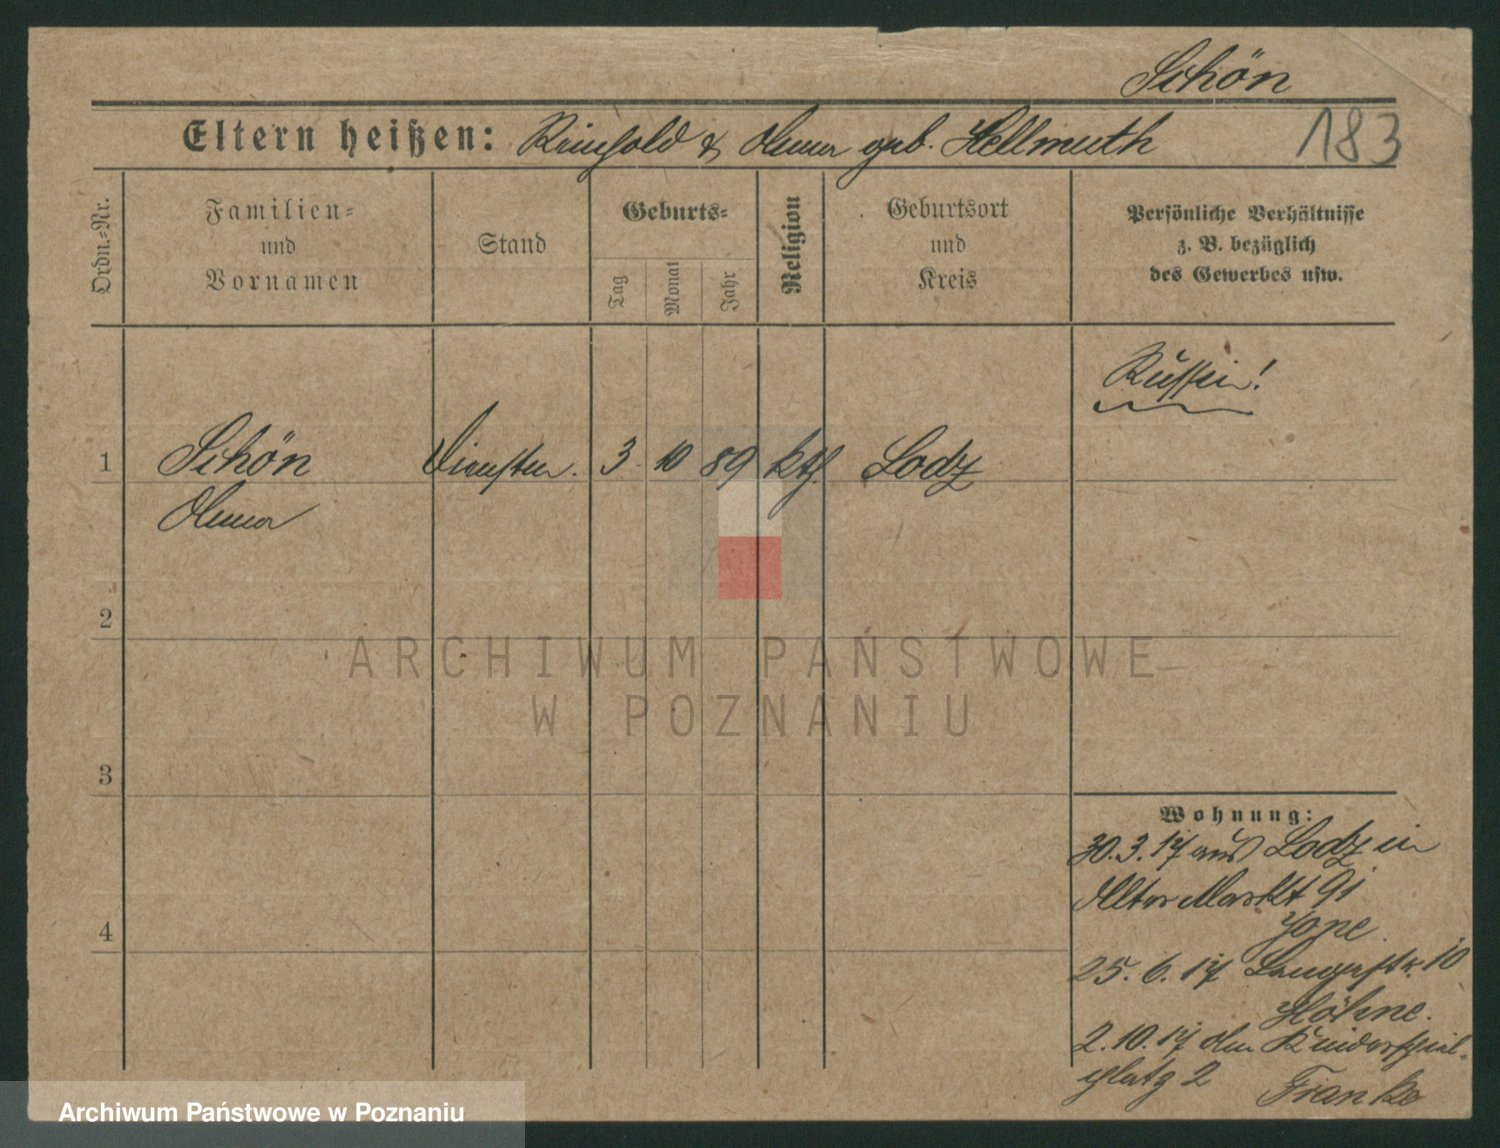 Schön
Eltern heißen: Reinhold & Anna geb. Hellmuth
183
Ordn.-Nr.
Familien-
und
Vornamen
Stand
Geburts-
Tag
Monat
Jahr
Religion
Geburtsort
und
Kreis
Persönliche Verhältnisse
z. B. bezüglich
des Gewerbes usw.
Russin!
1 Schön 3. 10 89 kth. Lodz
Anna
2
3
4
Wohnung:
30.3.17 aus Lodz in
Alter Markt 91
25.6.17 Langestr. 10
Höhne.
2.10.17 Am Kinderspiel-
platz 2 Franke
ARCHIWUM PAŃSTWOWE
W POZNANIU
Archiwum Państwowe w Poznaniu